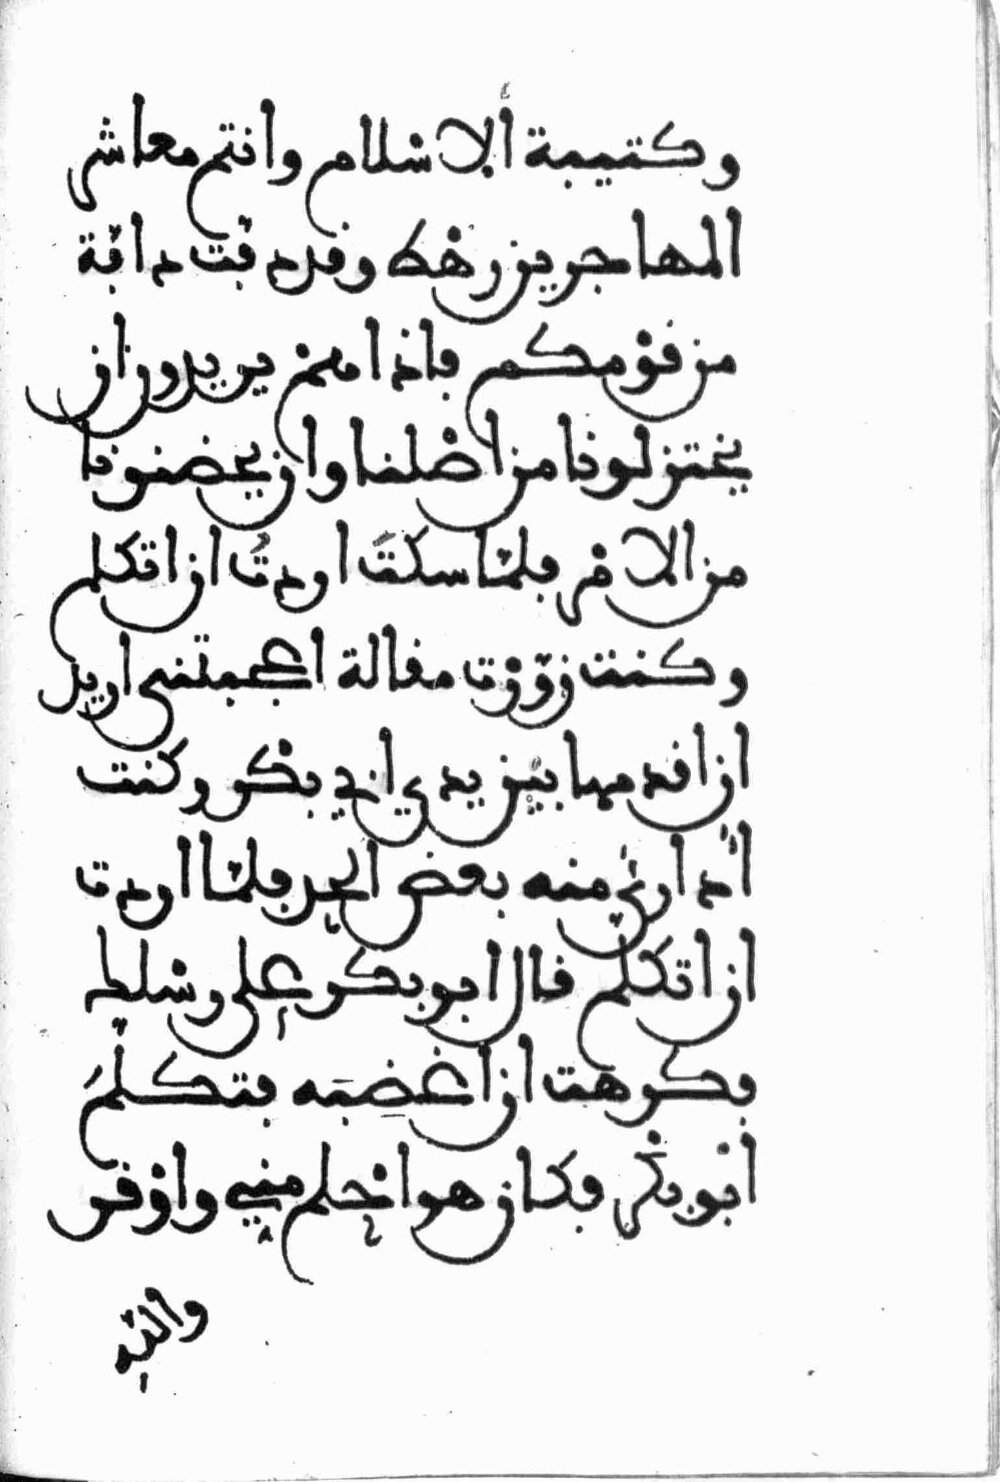 وكتيبة الاسلام وانتم معاشر
المهاجرين رهط وقد دفت دافة
من قومكم فاذا هم يريدون ان
يختزلونا من اصلنا وان يحضنونا
من الامر فلما سكت اردت ان اتكلم
وكنت زورت مقالة اعجبتني اريد
ان اقدمها بين يدي ابي بكر وكنت
اداري منه بعض الحد فلما اردت
ان اتكلم قال ابو بكر على رسلك
فكرهت ان اغضبه فتكلم
ابو بكر فكان هو احلم مني واوقر
والله